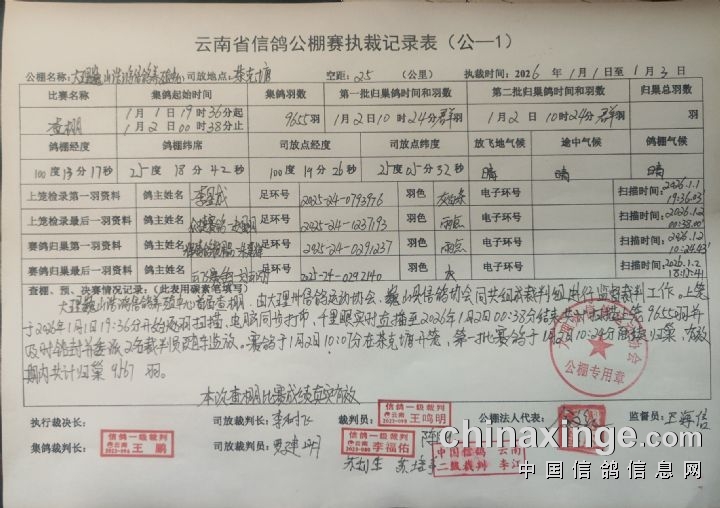 云南省信鸽公棚赛执裁记录表（公—1）
公棚名称: 司放地点: 莱克塘 空距: 25 （公里） 执裁时间: 2026 年 1 月 1 日至 1 月 3 日
比赛名称 集鸽起始时间 集鸽羽数 第一批归巢鸽时间和羽数 第二批归巢鸽时间和羽数 归巢总羽数
查棚 1 月 1 日 19 时 36 分起 9655 羽 1 月 2 日 10 时 24 分 群 羽 1 月 2 日 10 时 24 分 群 羽 羽
1 月 2 日 00 时 38 分止
鸽棚经度 鸽棚纬度 司放点经度 司放点纬度 放飞地气候 途中气候 鸽棚气候
100 度 13 分 17 秒 25 度 18 分 42 秒 100 度 19 分 26 秒 25 度 05 分 32 秒 晴 晴 晴
上笼检录第一羽资料 鸽主姓名 足环号 2025-24-0793976 羽色 电子环号 扫描时间: 2026.1.1 19:36.03
上笼检录最后一羽资料 鸽主姓名 足环号 2025-24-1237193 羽色 雨点 电子环号 扫描时间: 2026.1.2 00:38.00
赛鸽归巢第一羽资料 鸽主姓名 足环号 2025-24-0291237 羽色 雨点 电子环号 扫描时间: 2026.1.2 10:24.03
赛鸽归巢最后一羽资料 鸽主姓名 足环号 2025-24-0292140 羽色 灰 电子环号 扫描时间: 2026.1.2 18:15:41
查棚、预、决赛情况记录:（此表用碳素笔填写）
首届查棚，由大理州信鸽运动协会、巍山县信鸽协会同共组派裁判组进行监棚裁判工作。上笼
于2026年1月1日19:36分开始逐羽扫描，电脑同步打印，千里眼实时直播至2026年1月2日00:38分结束共计扫描上笼9655羽并
及时铅封并委派2名裁判员随车监放。赛鸽于1月2日10:07分在莱克塘开笼，第一批赛鸽于1月2日10:24分陆续归巢，有效
期内共计归巢 9167 羽。
本次查棚比赛成绩真实有效
公棚专用章
执行裁决长: 司放裁判长: 裁判员: 信鸽一级裁判 云南 王鸣明 公棚法人代表: 监督员: 王海信
集鸽裁判长: 信鸽一级裁判 云南 王鹏 司放裁判员: 贾建明 信鸽一级裁判 云南 李福佑
中国信鸽 云南
二级裁判 李江
chinaxinge.com
中国信鸽信息网